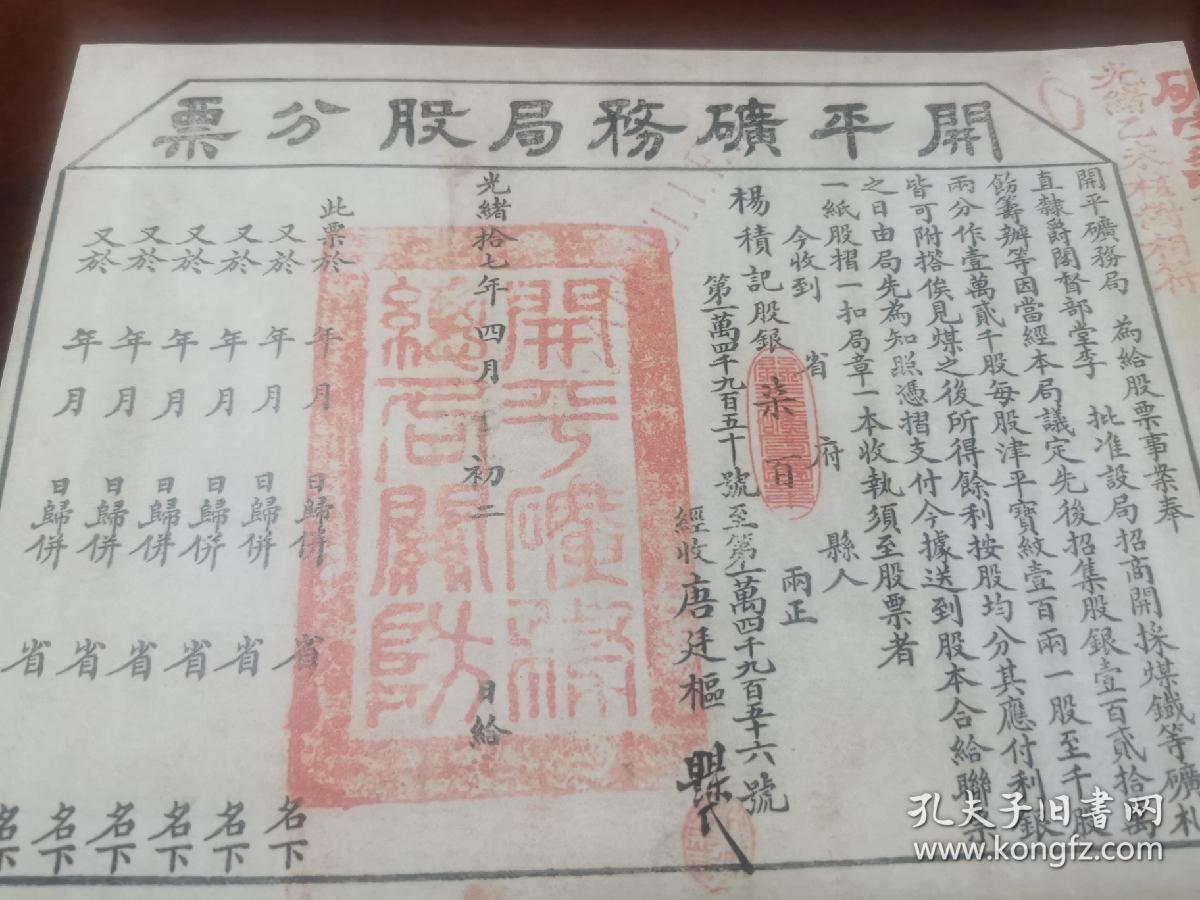 開平礦務局股分票
開平礦務局 為給股票事案奉
直隸爵閣督部堂李 批准設局招商開採煤鐵等礦札
飭籌辦等因當經本局議定先後招集股銀壹百貳拾萬
兩分作壹萬貳千股每股津平寶紋壹百兩一股至千股
皆可附搭俟見煤之後所得餘利按股均分其應付利銀
之日由局先為知照憑摺支付今據送到股本合給聯票
一紙股摺一扣局章一本收執須至股票者
今收到 省 府 縣人
楊積記股銀柒百 兩正
第一萬四千九百五十號至第一萬四千九百五十六號
經收唐廷樞
光緒拾七年四月 初二 日給
開平礦務
總局關防
此票於 年 月 日歸併 省 名下
又於 年 月 日歸併 省 名下
又於 年 月 日歸併 省 名下
又於 年 月 日歸併 省 名下
又於 年 月 日歸併 省 名下
又於 年 月 日歸併 省 名下
光緒乙未
孔夫子旧書网
www.kongfz.com